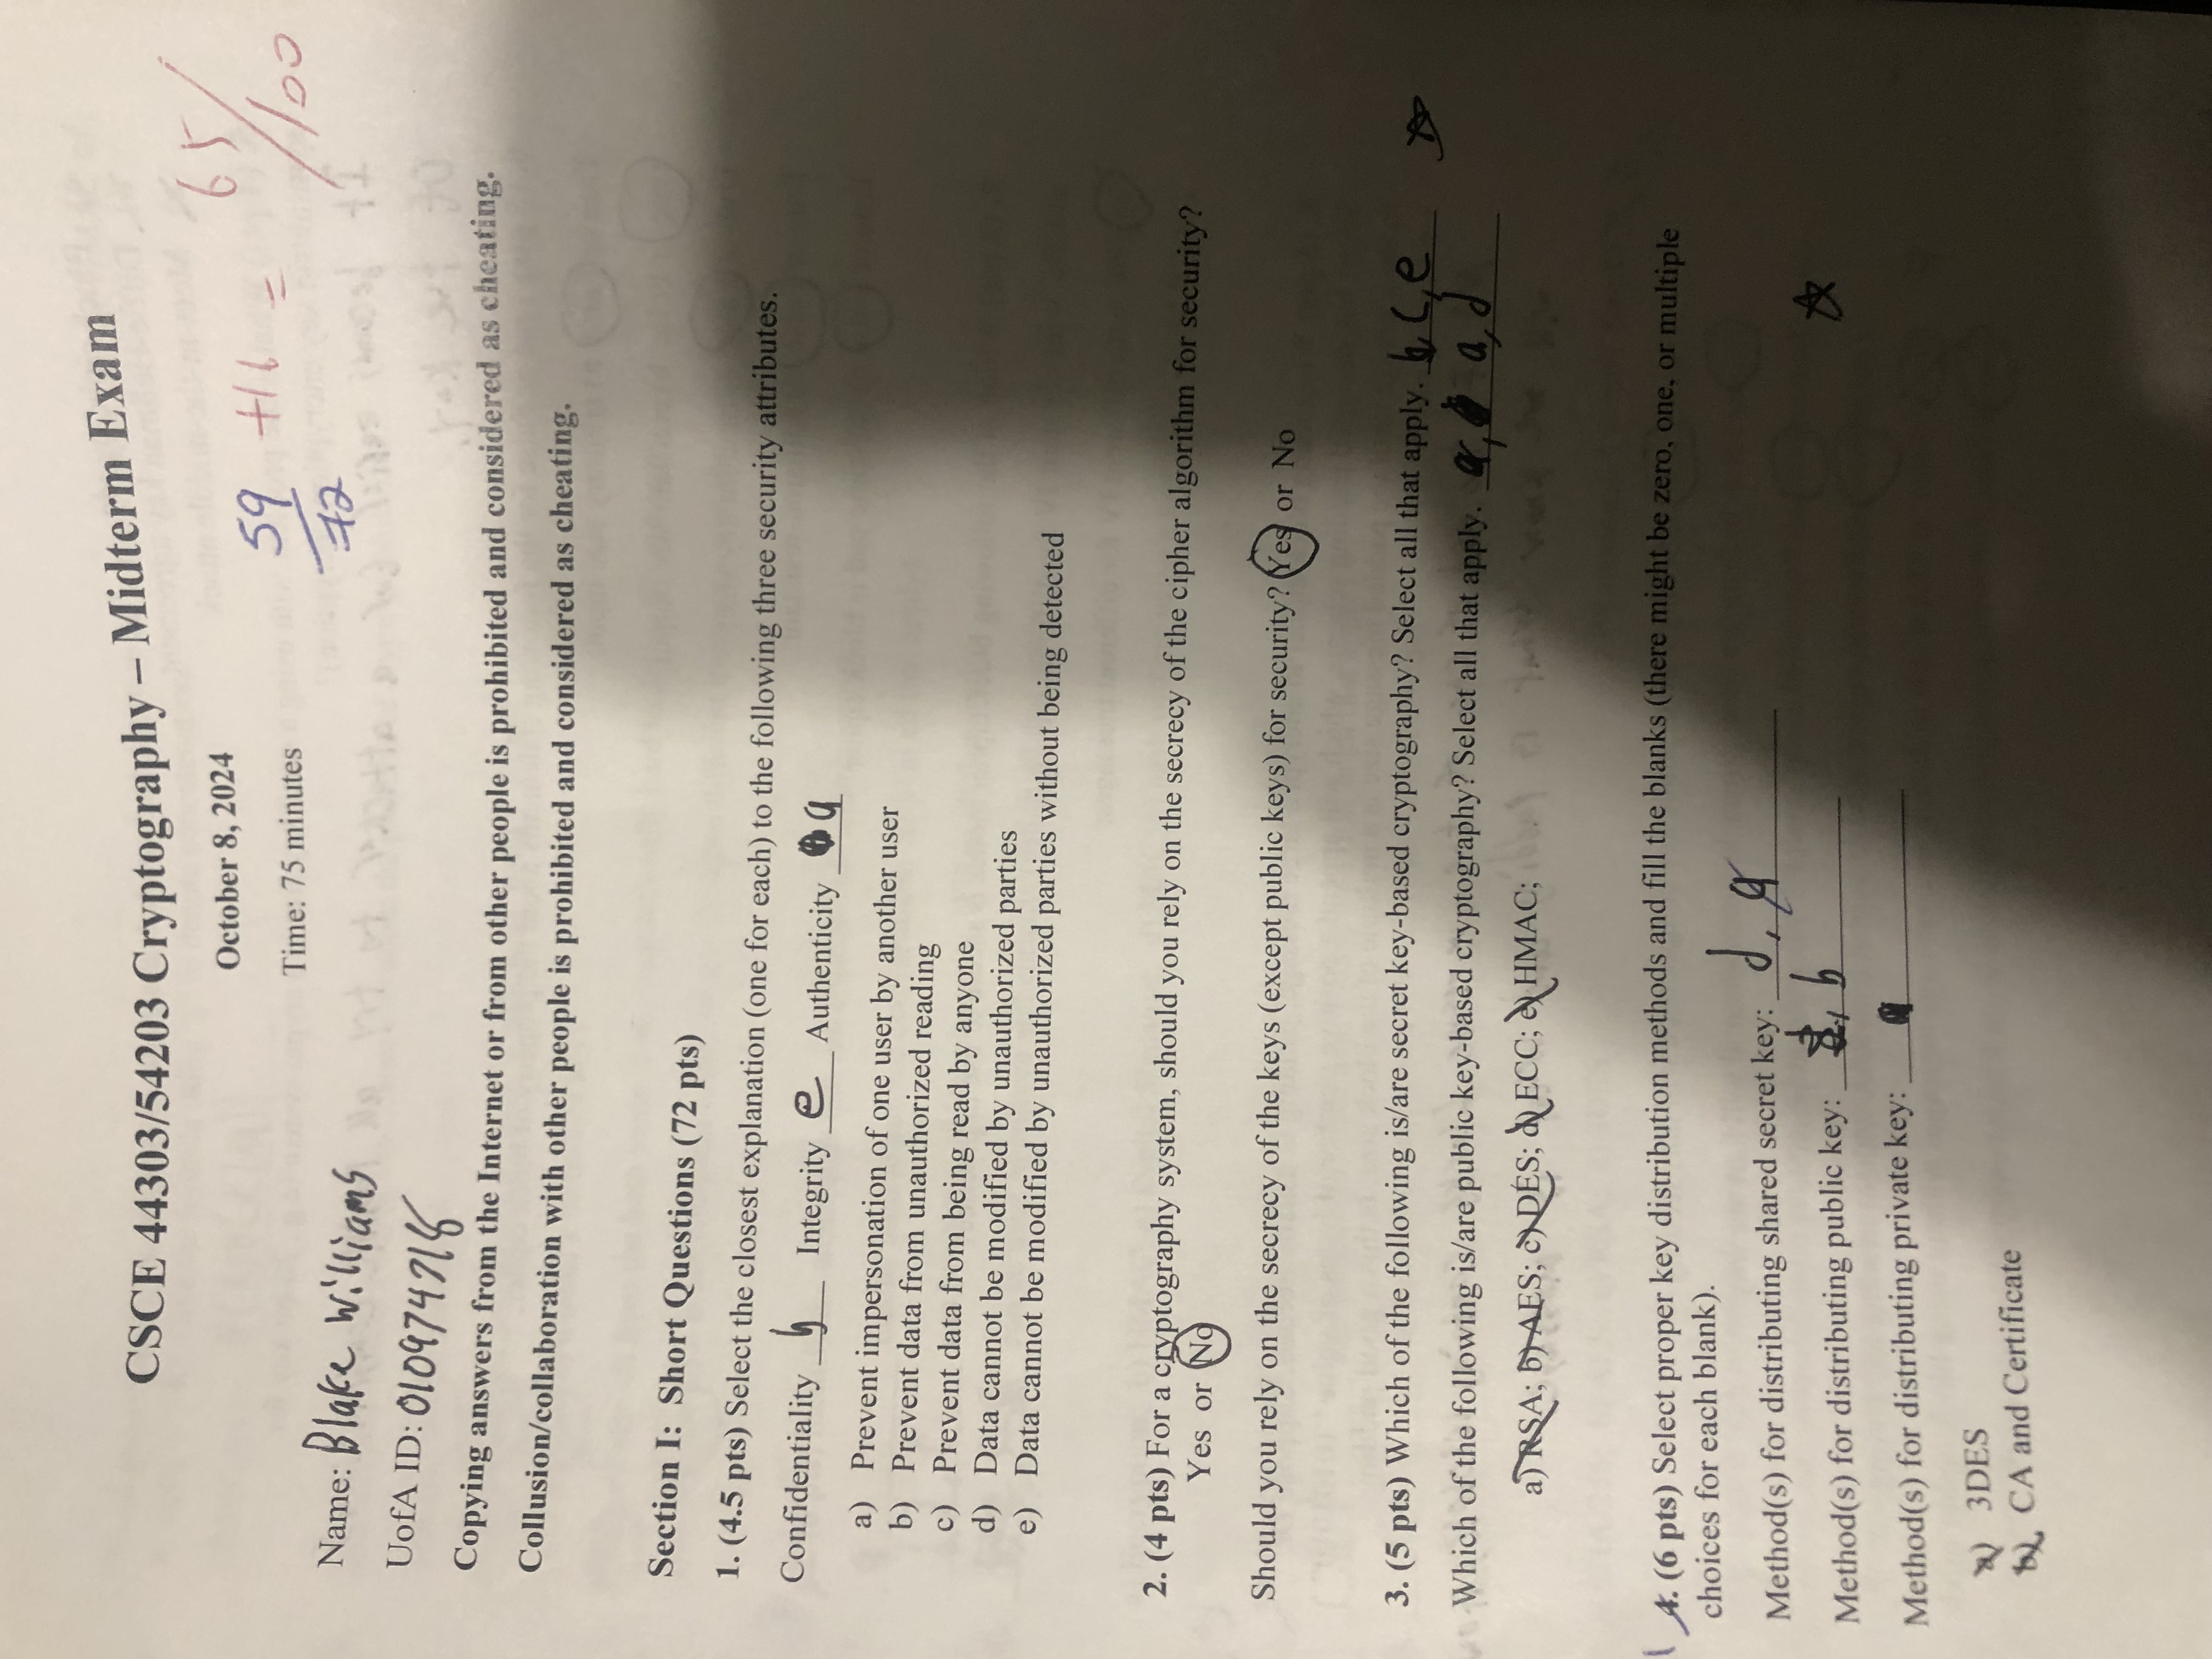 CSCE 44303/54203 Cryptography – Midterm Exam
October 8, 2024
Time: 75 minutes
59/72 +16 = 65/100
Name: Blake Williams
UofA ID: 010974718
Copying answers from the Internet or from other people is prohibited and considered as cheating.
Collusion/collaboration with other people is prohibited and considered as cheating.
Section I: Short Questions (72 pts)
1. (4.5 pts) Select the closest explanation (one for each) to the following three security attributes.
Confidentiality b Integrity e Authenticity a
a) Prevent impersonation of one user by another user
b) Prevent data from unauthorized reading
c) Prevent data from being read by anyone
d) Data cannot be modified by unauthorized parties
e) Data cannot be modified by unauthorized parties without being detected
2. (4 pts) For a cryptography system, should you rely on the secrecy of the cipher algorithm for security?
Yes or No
Should you rely on the secrecy of the keys (except public keys) for security? Yes or No
3. (5 pts) Which of the following is/are secret key-based cryptography? Select all that apply. b, c, e
Which of the following is/are public key-based cryptography? Select all that apply. a, d
a) RSA; b) AES; c) DES; d) ECC; e) HMAC;
4. (6 pts) Select proper key distribution methods and fill the blanks (there might be zero, one, or multiple
choices for each blank).
Method(s) for distributing shared secret key: d, a
Method(s) for distributing public key: b
Method(s) for distributing private key:
a) 3DES
b) CA and Certificate